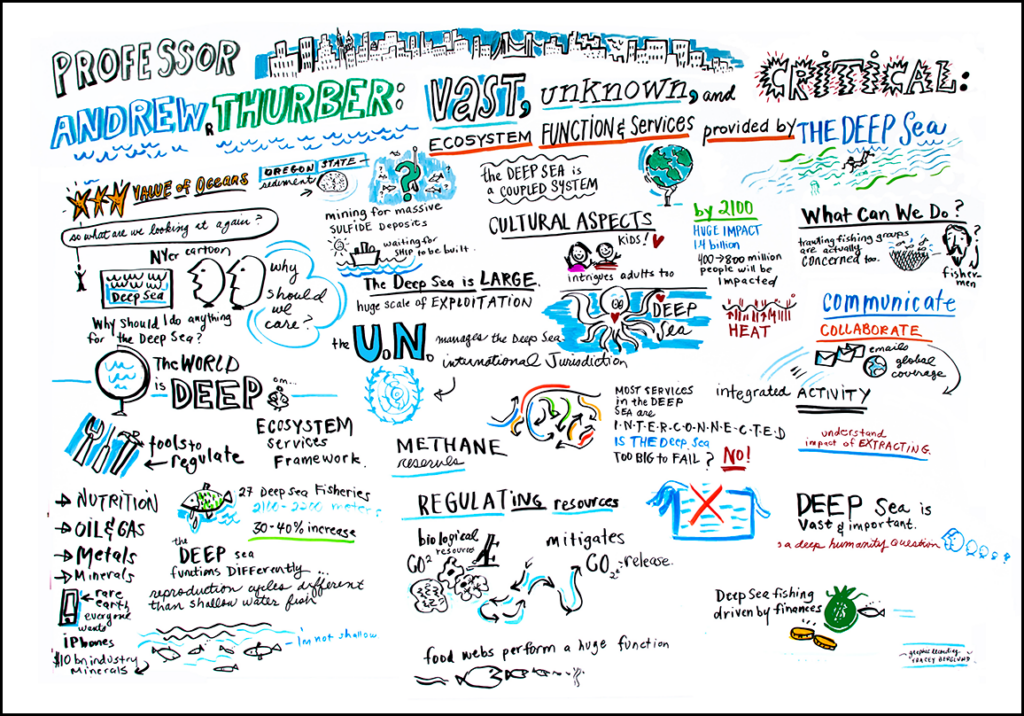 PROFESSOR
ANDREW R THURBER:
VAST, unknown, and CRITICAL:
ECOSYSTEM FUNCTION & Services provided by THE DEEP Sea
VALUE of OCEANS
so what are we looking at again?
NYer cartoon
Deep Sea
why
should
we
care?
Why should I do anything
for the Deep Sea?
The WORLD
is DEEP
om...
tools to
regulate
ECOSYSTEM
services
Framework.
NUTRITION
OIL & GAS
Metals
Minerals
rare
earth
everyone
wants
iPhones
$10 bn industry
Minerals
27 Deep Sea Fisheries
meters
30-40% increase
the
DEEP sea
functions DIFFerently...
reproduction cycles different
than shallow water fish
I'm not shallow
OREGON STATE
sediment
mining for massive
SULFIDE Deposits
waiting for
SHIP to be built.
The Deep Sea is LARGE.
huge scale of EXPLOITATION
the U.N. manages the Deep Sea
international Jurisdiction
METHANE
reserves
the DEEP SEA is
A COUPLED SYSTEM
CULTURAL ASPECTS
kids!
intrigues adults too
DEEP
Sea
MOST SERVICES
in the DEEP
SEA are
I·N·T·E·R·C·O·N·N·E·C·T·E·D
IS THE Deep Sea
TOO BIG to FAIL? NO!
REGULATING resources
biological
resources
CO²
mitigates
CO₂-release.
food webs perform a huge function
by 2100
HUGE IMPACT
1.4 billion
400→800 million
people will be
impacted
HEAT
What Can We Do?
trawling fishing groups
are actually
concerned too.
?
fisher
men
communicate
COLLABORATE
emails
global
coverage
integrated ACTIVITY
understand
impact of EXTRACTING.
DEEP Sea is
Vast & important.
is a deep humanity question
Deep Sea fishing
driven by finances
$
graphic recording
TRACEY BERGLUND